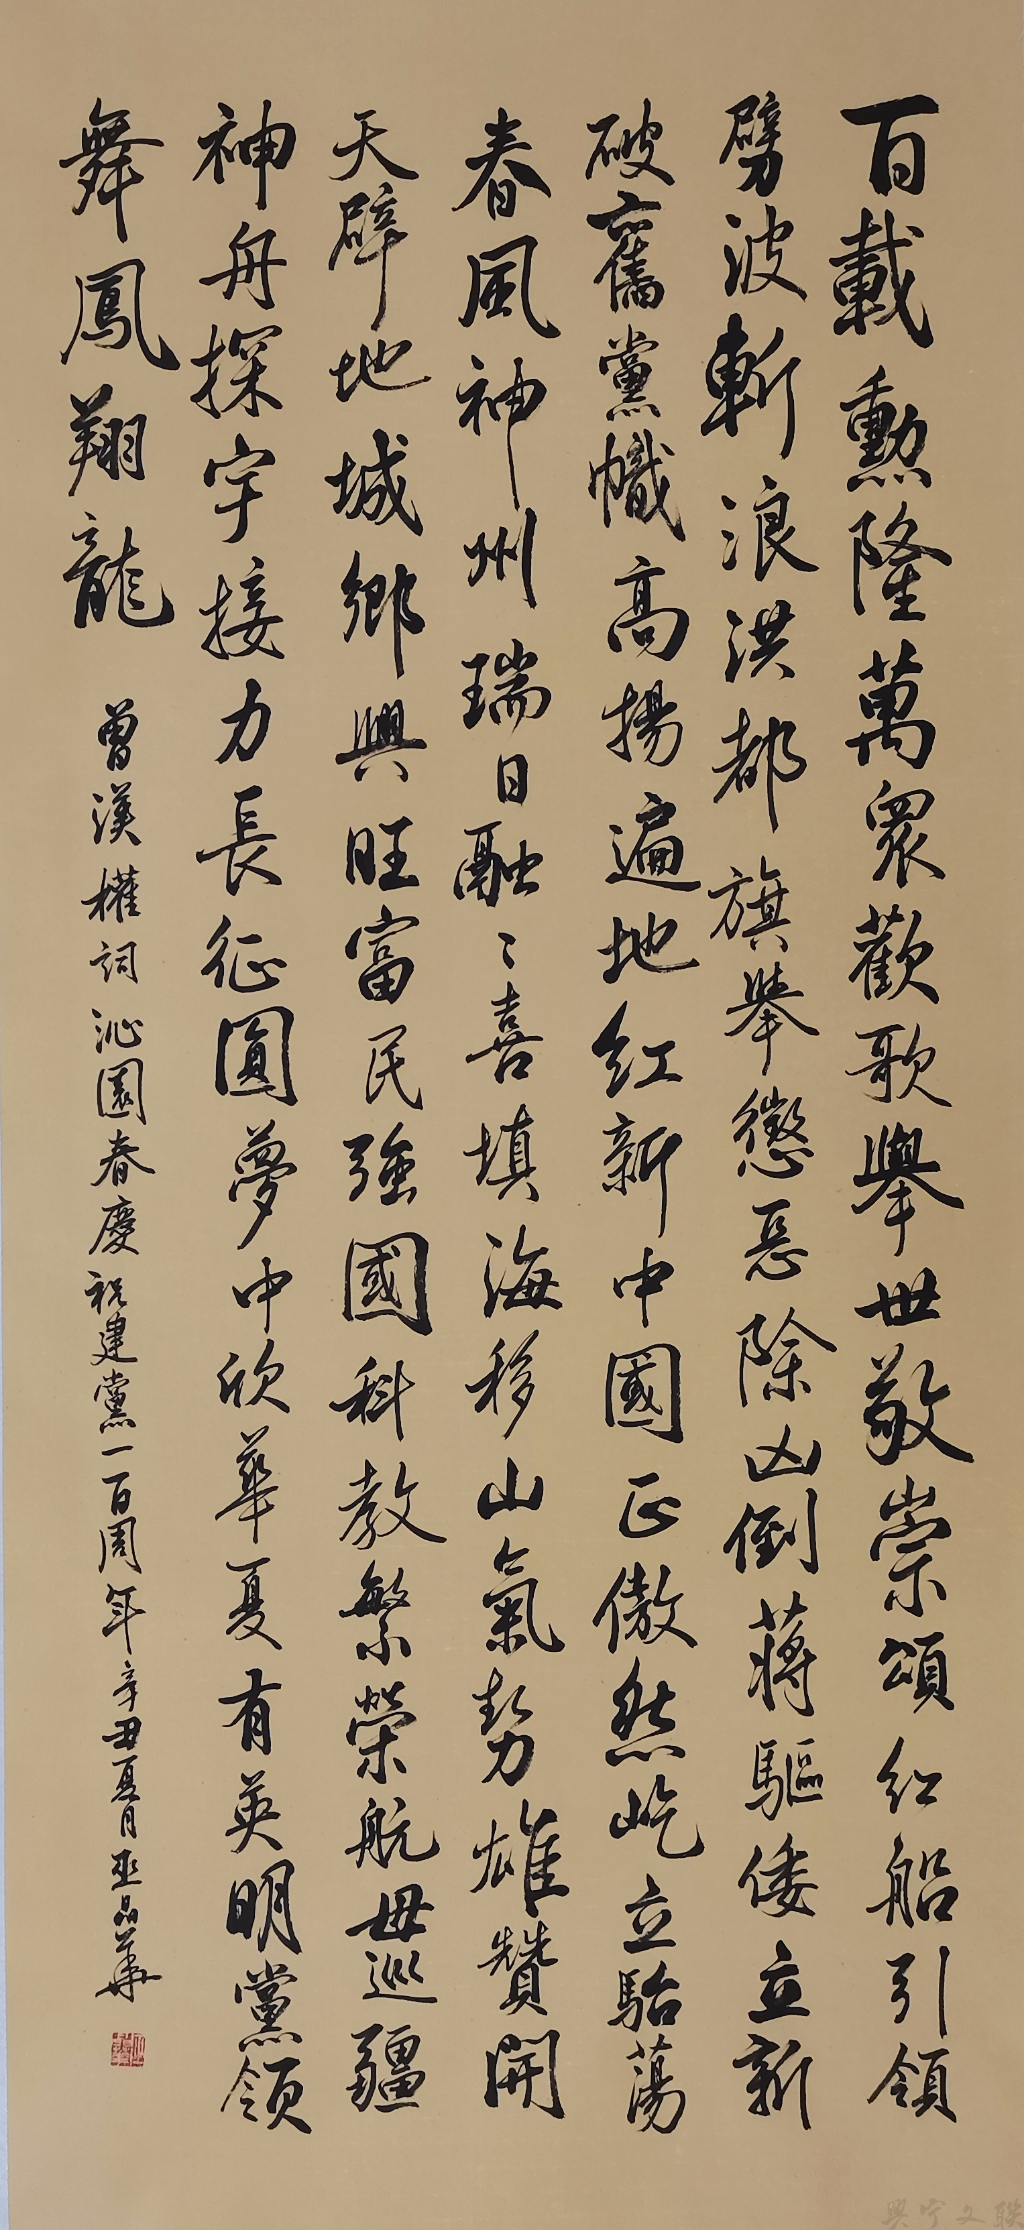 百載勳隆萬眾歡歌舉世敬崇頌紅船引領
劈波斬浪洪都旗舉懲惡除凶倒蔣驅倭立新
破舊黨幟高揚遍地紅新中國正傲然屹立駘蕩
春風神州瑞日融〻喜填海移山氣勢雄贊開
天辟地城鄉興旺富民強國科教繁榮航母巡疆
神舟探宇接力長征圓夢中欣華夏有英明黨領
舞鳳翔龍
曾漢權詞沁園春慶祝建黨一百周年辛丑夏月巫品華
興寧文聯